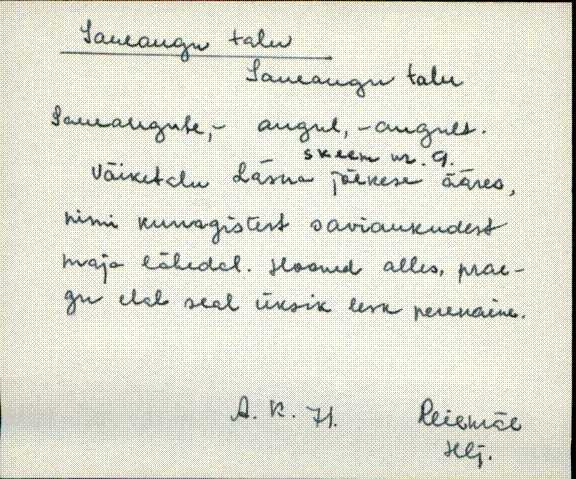 Saueaugu talu
Saueaugu talu
Saueaugule, - augul, - augult.
skeem nr. 9.
Väiketalu Läsna jõekese ääres,
nimi kunagistest saviaukudest
maja lähedal. Hooned alles, prae-
gu elab seal üksik lesk perenaine.
A. K. H.
Hlj.